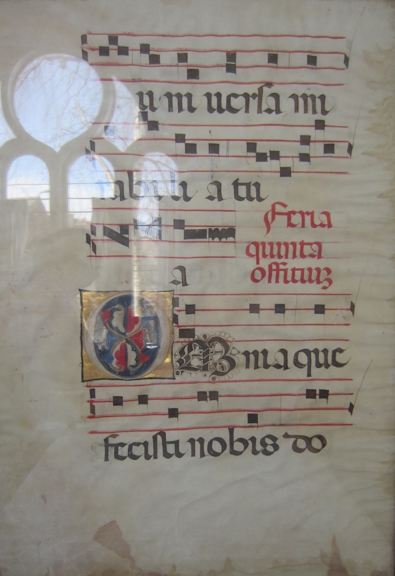 u ni uersa mi
rabili a tu
Feria
quinta
offitiuz
a
OMnia que
fecisti nobis do